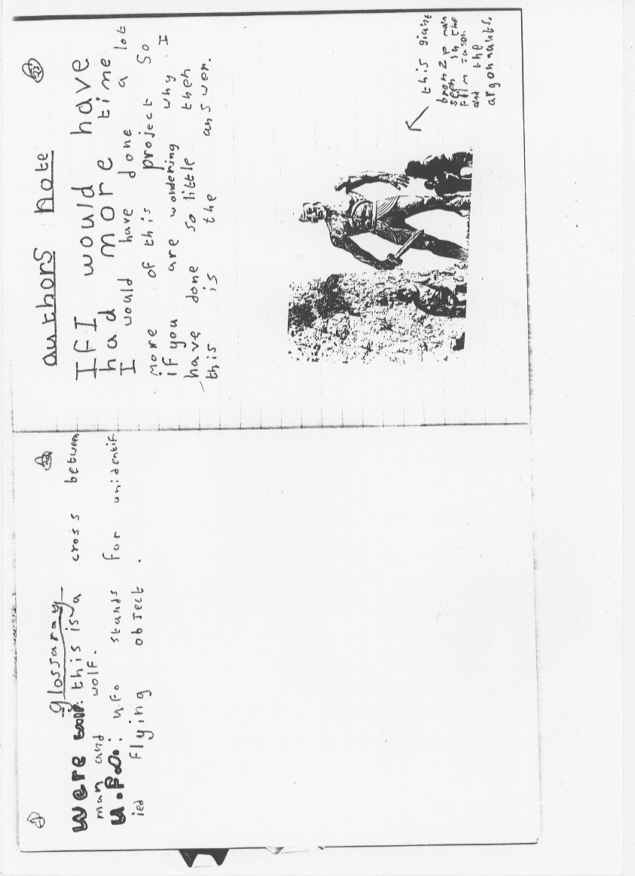 glossaray
were wolf: this is a cross between
man and wolf.
u.f.o.: ufo stands for unidentif
ied flying object .
authors note
If I would have
had more time
I would have done a lot
more of this project so
if you are wondering why I
have done so little then
this is the answer.
this giant
bronze man
seen in the
film jason
and the
argonauts.